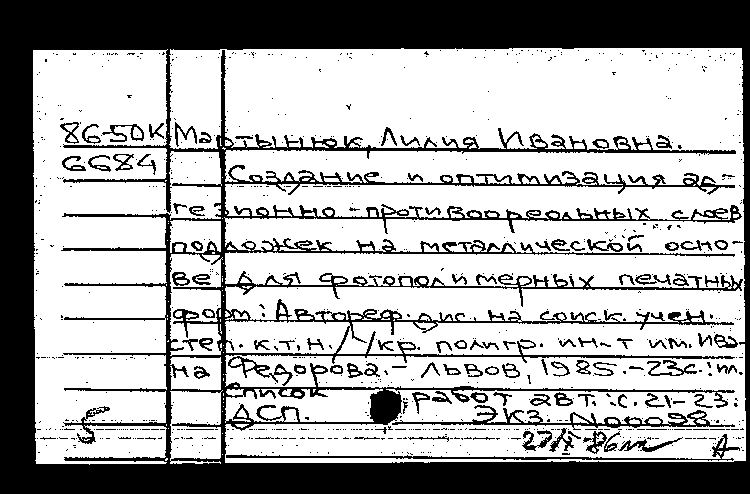 86-50К Мартынюк, Лилия Ивановна.
6684 Создание и оптимизация ад-
гезионно-противоореольных слоев
подложек на металлической осно-
ве для фотополимерных печатных
форм: Автореф. дис. на соиск. учен.
степ. к.т.н. / Укр. полигр. ин-т им. Ива-
на Федорова. - Львов, 1985. - 23с.: ил.
Список работ авт.: с. 21-23.
ДСП. Экз. N00098.
5
А